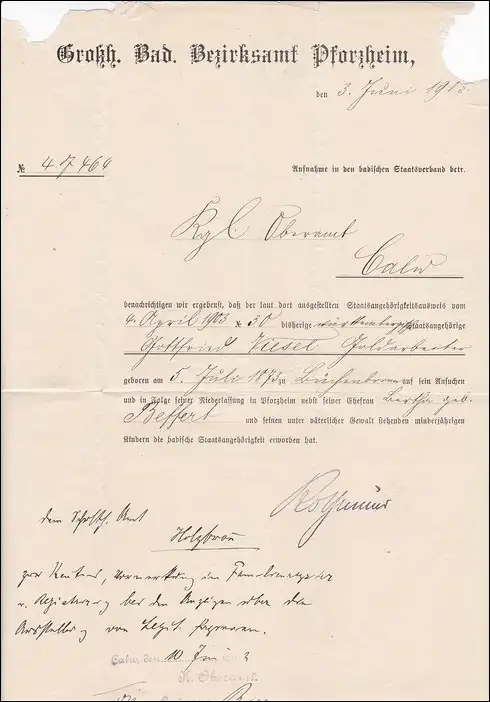 Großh. Bad. Bezirksamt Pforzheim,
den 3. Juni 190
№ 47464
Aufnahme in den badischen Staatsverband betr.
Kgl. Oberamt
Calw
benachrichtigen wir ergebenst, daß der laut dort ausgestellten Staatsangehörigkeitsausweis vom
4. April 1903 № 30 bisherige württembergische Staatsangehörige
Gottfried Goldarbeiter
geboren am 5. Juli 1873 zu Büchenbronn auf sein Ansuchen
und in Folge seiner Niederlassung in Pforzheim nebst seiner Ehefrau Bertha geb.
Beffert und seinen unter väterlicher Gewalt stehenden minderjährigen
Kindern die badische Staatsangehörigkeit erworben hat.
dem Schulth. Amt
Holzbronn
zur Kenntnis, Vormerkung im Familienregister
u. bei den Anzeigen über die
Ausstellung von Legit. Papieren.
Calw, den 10 Juni
K. Oberamt.